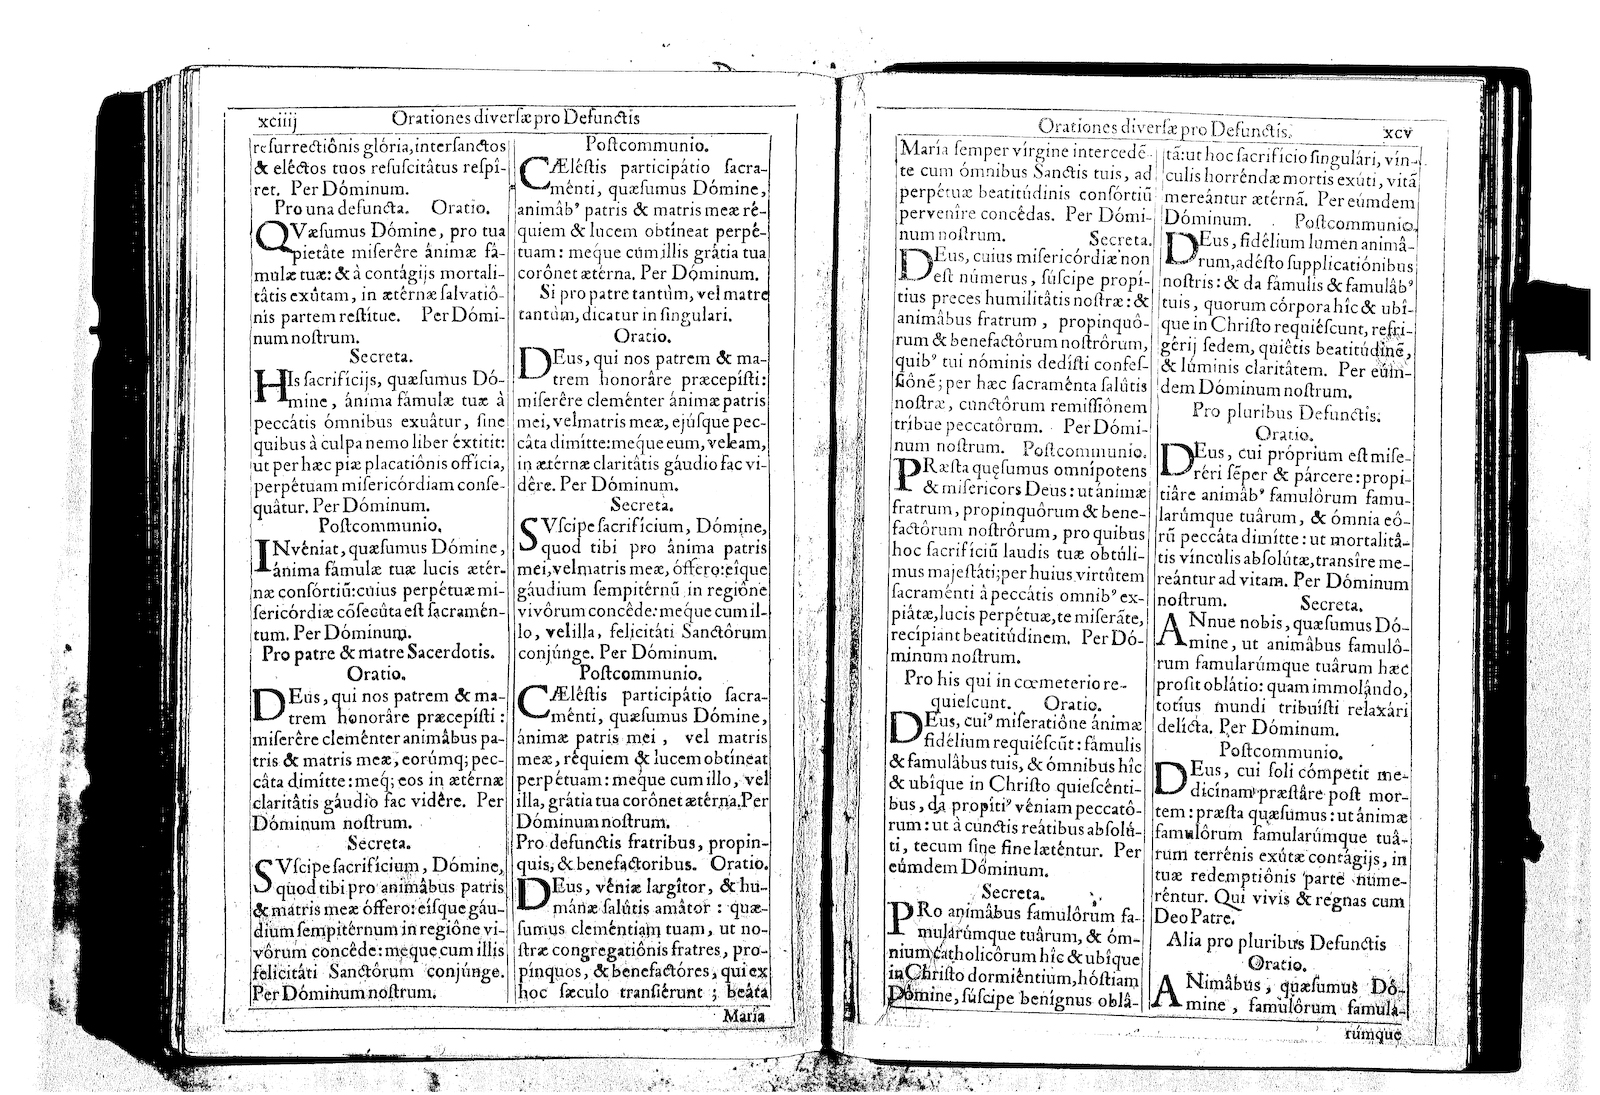 xciiij
Orationes diverſæ pro Defunctis
reſurrectiônis glória, inter ſanctos
& eléctos tuos reſuſcitâtus reſpî-
ret. Per Dóminum.
Pro una defuncta. Oratio.
QVæſumus Dómine, pro tua
pietâte miſerêre ánimæ fá-
mulæ tuæ: & à contágijs mortali-
tâtis exûtam, in ætérnæ ſalvatiô-
nis partem reſtítue. Per Dómi-
num noſtrum.
Secreta.
HIs ſacrifícijs, quæſumus Dó-
mine, ánima fámulæ tuæ à
peccâtis ómnibus exuâtur, ſine
quibus à culpa nemo liber éxtitit:
ut per hæc piæ placatiônis offícia,
perpétuam miſericórdiam conſe-
quâtur. Per Dóminum.
Poſtcommunio.
INvéniat, quæſumus Dómine,
ánima fámulæ tuæ lucis ætér-
næ conſórtiũ: cuius perpétuæ mi-
ſericórdiæ cõſecûta eſt ſacramén-
tum. Per Dóminum.
Pro patre & matre Sacerdotis.
Oratio.
DEus, qui nos patrem & ma-
trem honorâre præcepíſti:
miſerêre cleménter animâbus pa-
tris & matris meæ, eorúmq; pec-
câta dimítte: meq; eos in ætérnæ
claritâtis gáudio fac vidêre. Per
Dóminum noſtrum.
Secreta.
SVſcipe ſacrifícium, Dómine,
quod tibi pro animâbus patris
& matris meæ óffero: eíſque gáu-
dium ſempitérnum in regiône vi-
vôrum concêde: meque cum illis
felicitáti Sanctôrum conjúnge.
Per Dóminum noſtrum.
Poſtcommunio.
CÆléſtis participátio ſacra-
ménti, quæſumus Dómine,
animâb' patris & matris meæ ré-
quiem & lucem obtíneat perpé-
tuam: meque cùm illis grátia tua
corônet ætérna. Per Dóminum.
Si pro patre tantùm, vel matre
tantùm, dicatur in ſingulari.
Oratio.
DEus, qui nos patrem & ma-
trem honorâre præcepíſti:
miſerêre cleménter ánimæ patris
mei, vel matris meæ, ejúſque pec-
câta dimítte: meque eum, vel eam,
in ætérnæ claritâtis gáudio fac vi-
dêre. Per Dóminum.
Secreta.
SVſcipe ſacrifícium, Dómine,
quod tibi pro ánima patris
mei, vel matris meæ, óffero: eíque
gáudium ſempitérnũ in regiône
vivôrum concêde: meque cum il-
lo, vel illa, felicitáti Sanctôrum
conjúnge. Per Dóminum.
Poſtcommunio.
CÆléſtis participátio ſacra-
ménti, quæſumus Dómine,
ánimæ patris mei, vel matris
meæ, réquiem & lucem obtíneat
perpétuam: meque cum illo, vel
illa, grátia tua corônet ætérna. Per
Dóminum noſtrum.
Pro defunctis fratribus, propin-
quis, & benefactoribus. Oratio.
DEus, véniæ largîtor, & hu-
mánæ ſalútis amâtor: quæ-
ſumus cleméntiam tuam, ut no-
ſtræ congregatiônis fratres, pro-
pínquos, & benefactóres, qui ex
hoc ſæculo tranſiérunt; beáta
María
Orationes diverſæ pro Defunctis.
xcv
María ſemper vírgine intercedẽ-
te cum ómnibus Sanctis tuis, ad
perpétuæ beatitúdinis conſórtiũ
pervenîre concédas. Per Dómi-
num noſtrum. Secreta.
DEus, cuius miſericórdiæ non
eſt númerus, ſúſcipe propí-
tius preces humilitâtis noſtræ: &
animâbus fratrum, propinquô-
rum & benefactôrum noſtrôrum,
quib' tui nóminis dedíſti confeſ-
ſiônẽ; per hæc ſacraménta ſalûtis
noſtræ, cunctôrum remiſſiônem
tríbue peccatôrum. Per Dómi-
num noſtrum. Poſtcommunio.
PRæſta quęſumus omnípotens
& miſéricors Deus: ut ánimæ
fratrum, propinquôrum & bene-
factôrum noſtrôrum, pro quibus
hoc ſacrifíciũ laudis tuæ obtúli-
mus majeſtáti; per huius virtûtem
ſacraménti à peccátis omnib' ex-
piátæ, lucis perpétuæ, te miſerãte,
recípiant beatitúdinem. Per Dó-
minum noſtrum.
Pro his qui in cœmeterio re-
quieſcunt. Oratio.
DEus, cui' miſeratiône ánimæ
fidélium requiéſcũt: fámulis
& famulâbus tuis, & ómnibus hîc
& ubíque in Chriſto quieſcénti-
bus, da propíti' véniam peccatô-
rum: ut à cunctis reátibus abſolú-
ti, tecum ſine fine læténtur. Per
eúmdem Dóminum.
Secreta.
PRo animâbus famulôrum fa-
mularúmque tuârum, & óm-
nium catholicôrum hîc & ubíque
in Chriſto dormiéntium, hóſtiam
Dómine, ſúſcipe benígnus oblâ-
tã: ut hoc ſacrifício ſingulári, vín-
culis horréndæ mortis exúti, vitã
mereántur ætérnã. Per eúmdem
Dóminum. Poſtcommunio.
DEus, fidélium lumen animâ-
rum, adéſto ſupplicatiónibus
noſtris: & da fámulis & famulâb'
tuis, quorum córpora hîc & ubí-
que in Chriſto requiéſcunt, refri-
gérij ſedem, quiêtis beatitúdinẽ,
& lúminis claritâtem. Per eúm-
dem Dóminum noſtrum.
Pro pluribus Defunctis.
Oratio.
DEus, cui próprium eſt miſe-
réri ſẽper & párcere: propi-
tiâre animâb' famulôrum famu-
larúmque tuârum, & ómnia eô-
rũ peccâta dimítte: ut mortalitâ-
tis vínculis abſolútæ, tranſîre me-
reántur ad vitam. Per Dóminum
noſtrum. Secreta.
ANnue nobis, quæſumus Dó-
mine, ut animâbus famulô-
rum famularúmque tuârum hæc
proſit oblátio: quam immolándo,
totíus mundi tribuíſti relaxári
delícta. Per Dóminum.
Poſtcommunio.
DEus, cui ſoli cómpetit me-
dicínam præſtâre poſt mor-
tem: præſta quæſumus: ut ánimæ
famulôrum famularúmque tuâ-
rum terrénis exútæ contágijs, in
tuæ redemptiônis parte nume-
réntur. Qui vivis & regnas cum
Deo Patre.
Alia pro pluribus Defunctis
Oratio.
ANimâbus, quæſumus Dó-
mine, famulôrum famula-
rúmque